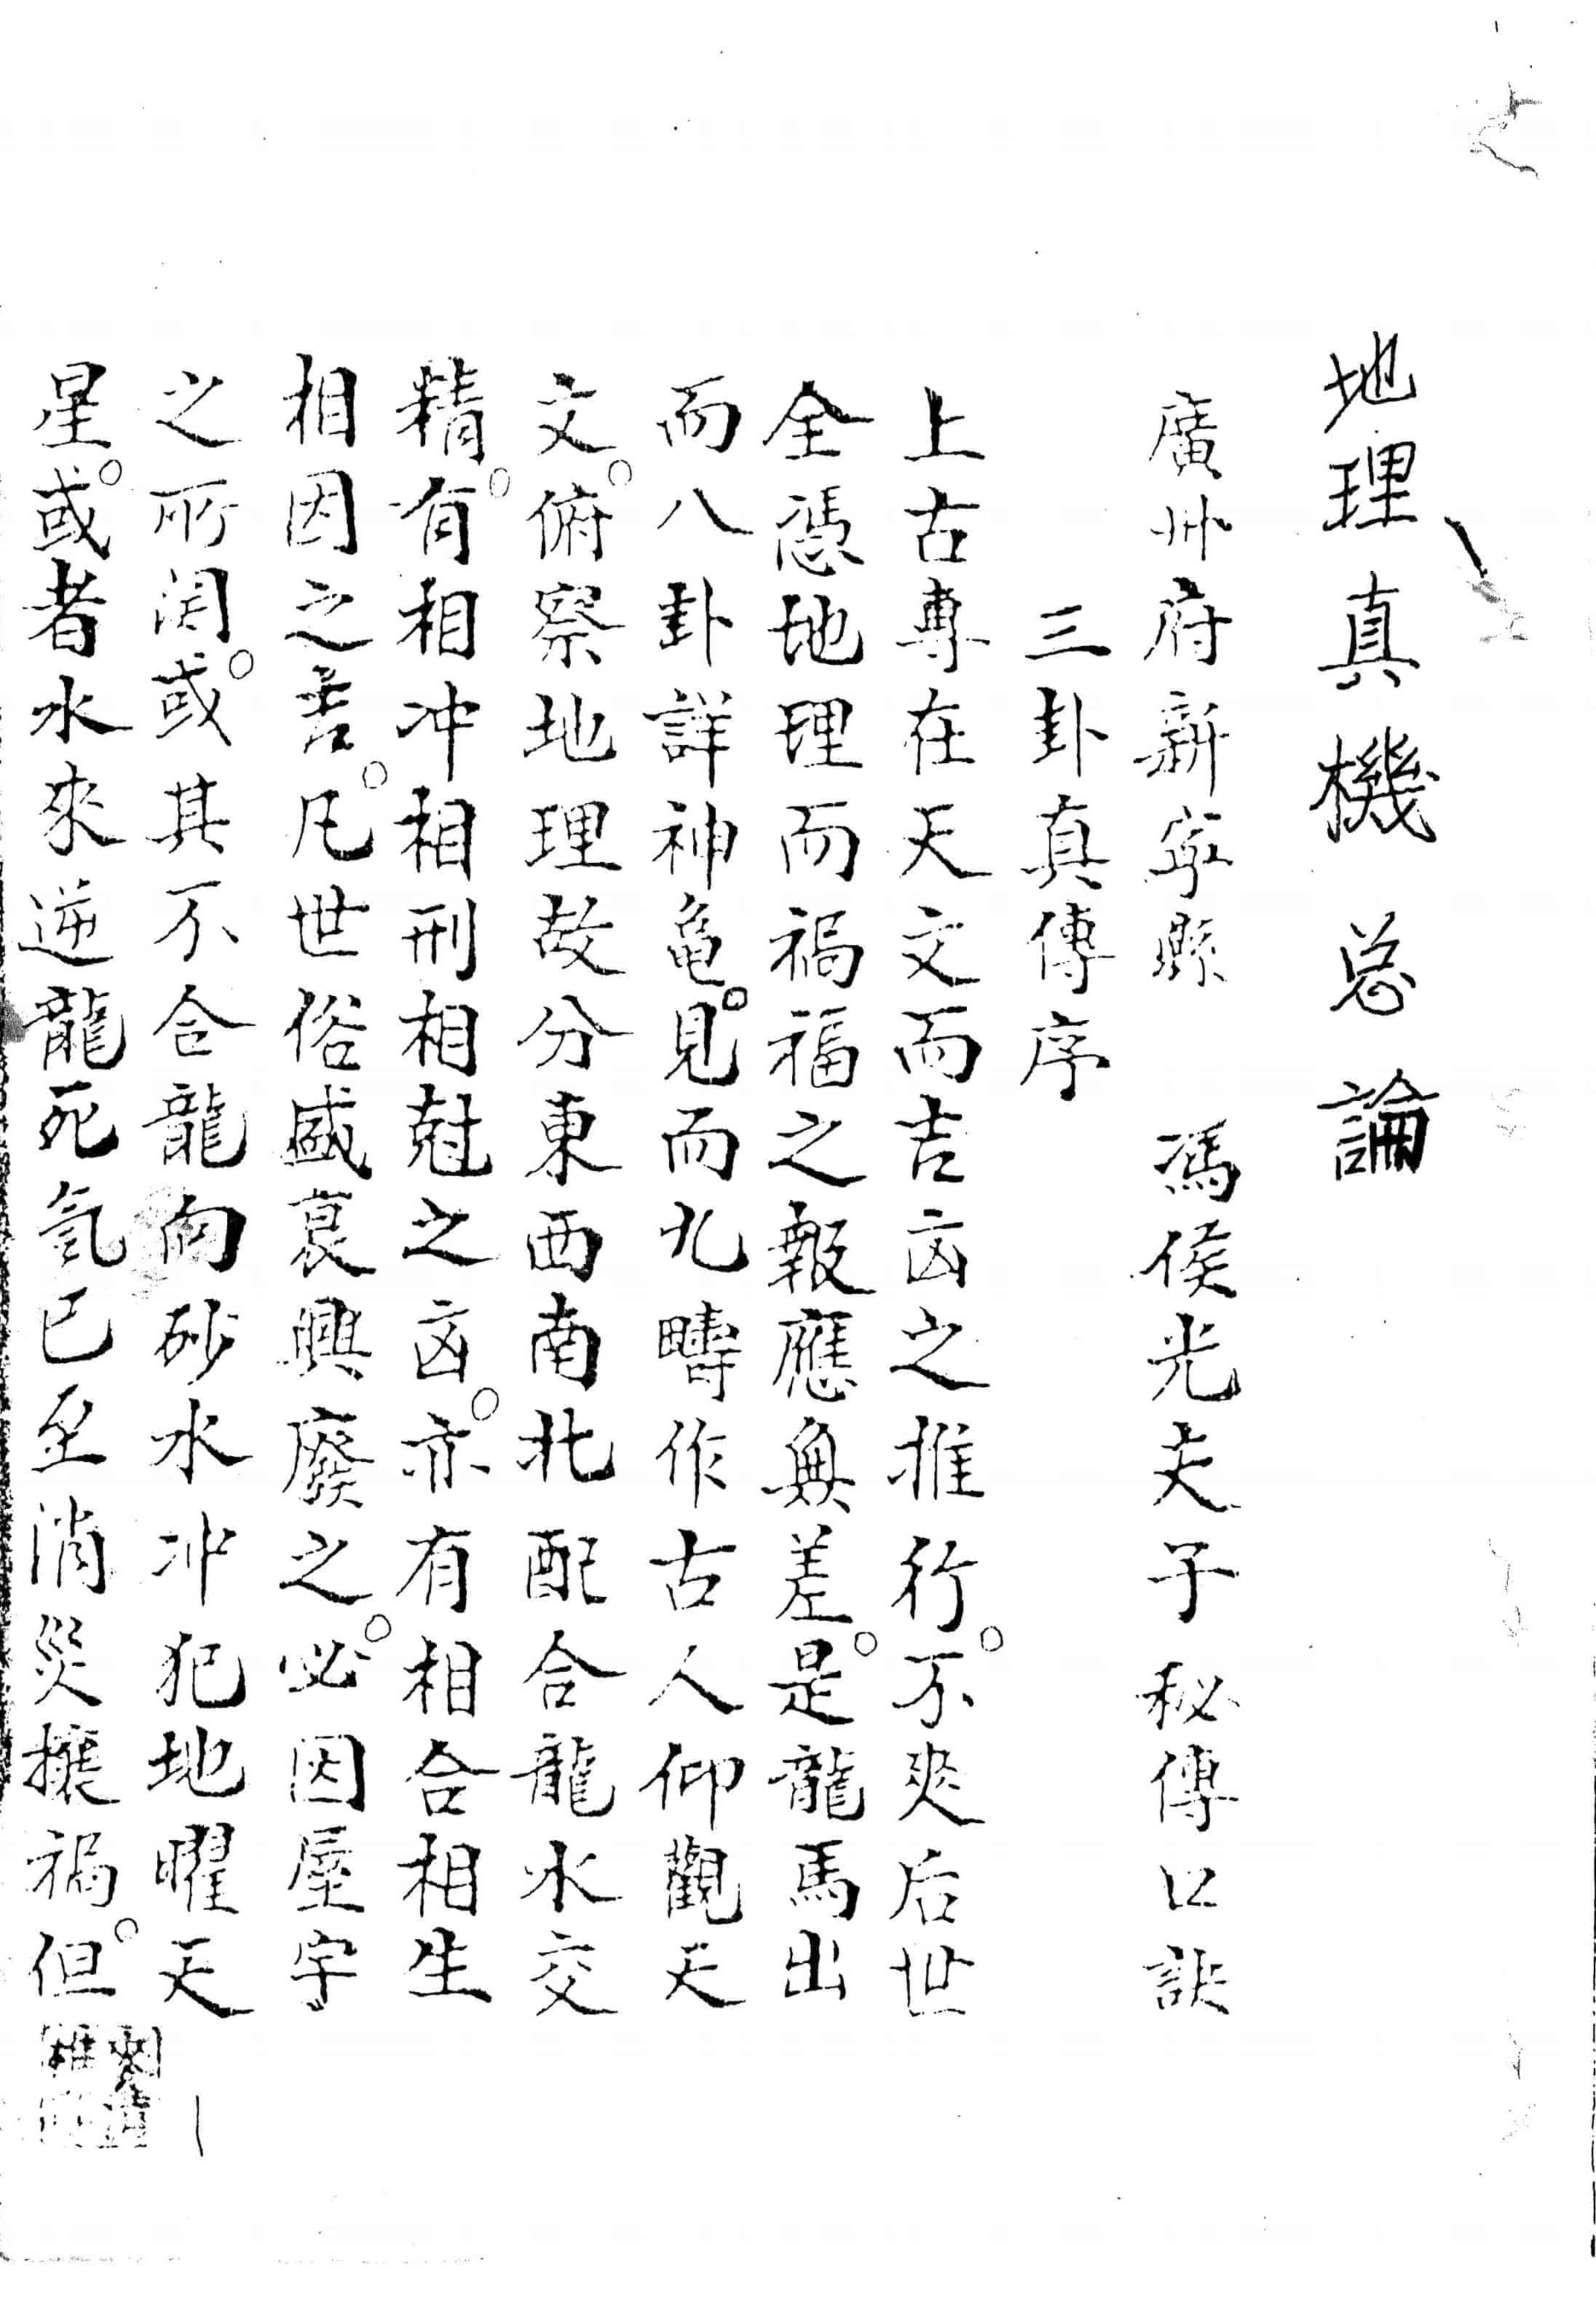 地理真機总論
廣州府新寧縣　馮侯光夫子秘傳口訣
三卦真傳序
上古專在天文而吉凶之推行。不爽后世
全憑地理而禍福之報應無差。是龍馬出
而八卦詳神龟。見而九疇作古人仰觀天
文。俯察地理故分東西南北配合龍水交
精。有相冲相刑相尅之凶。亦有相合相生
相因之吉。凡世俗盛衰興廢之。必因屋宇
之所関。或其不合龍向砂水冲犯地曜天
星。或者水來逆龍死氣已至消災攘禍。但